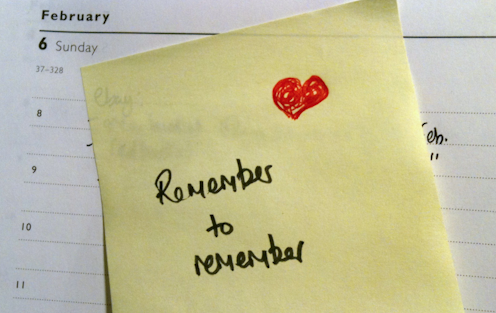 February
6 Sunday
37–328
8
ebay:
9
Remember
to
remember
10
11